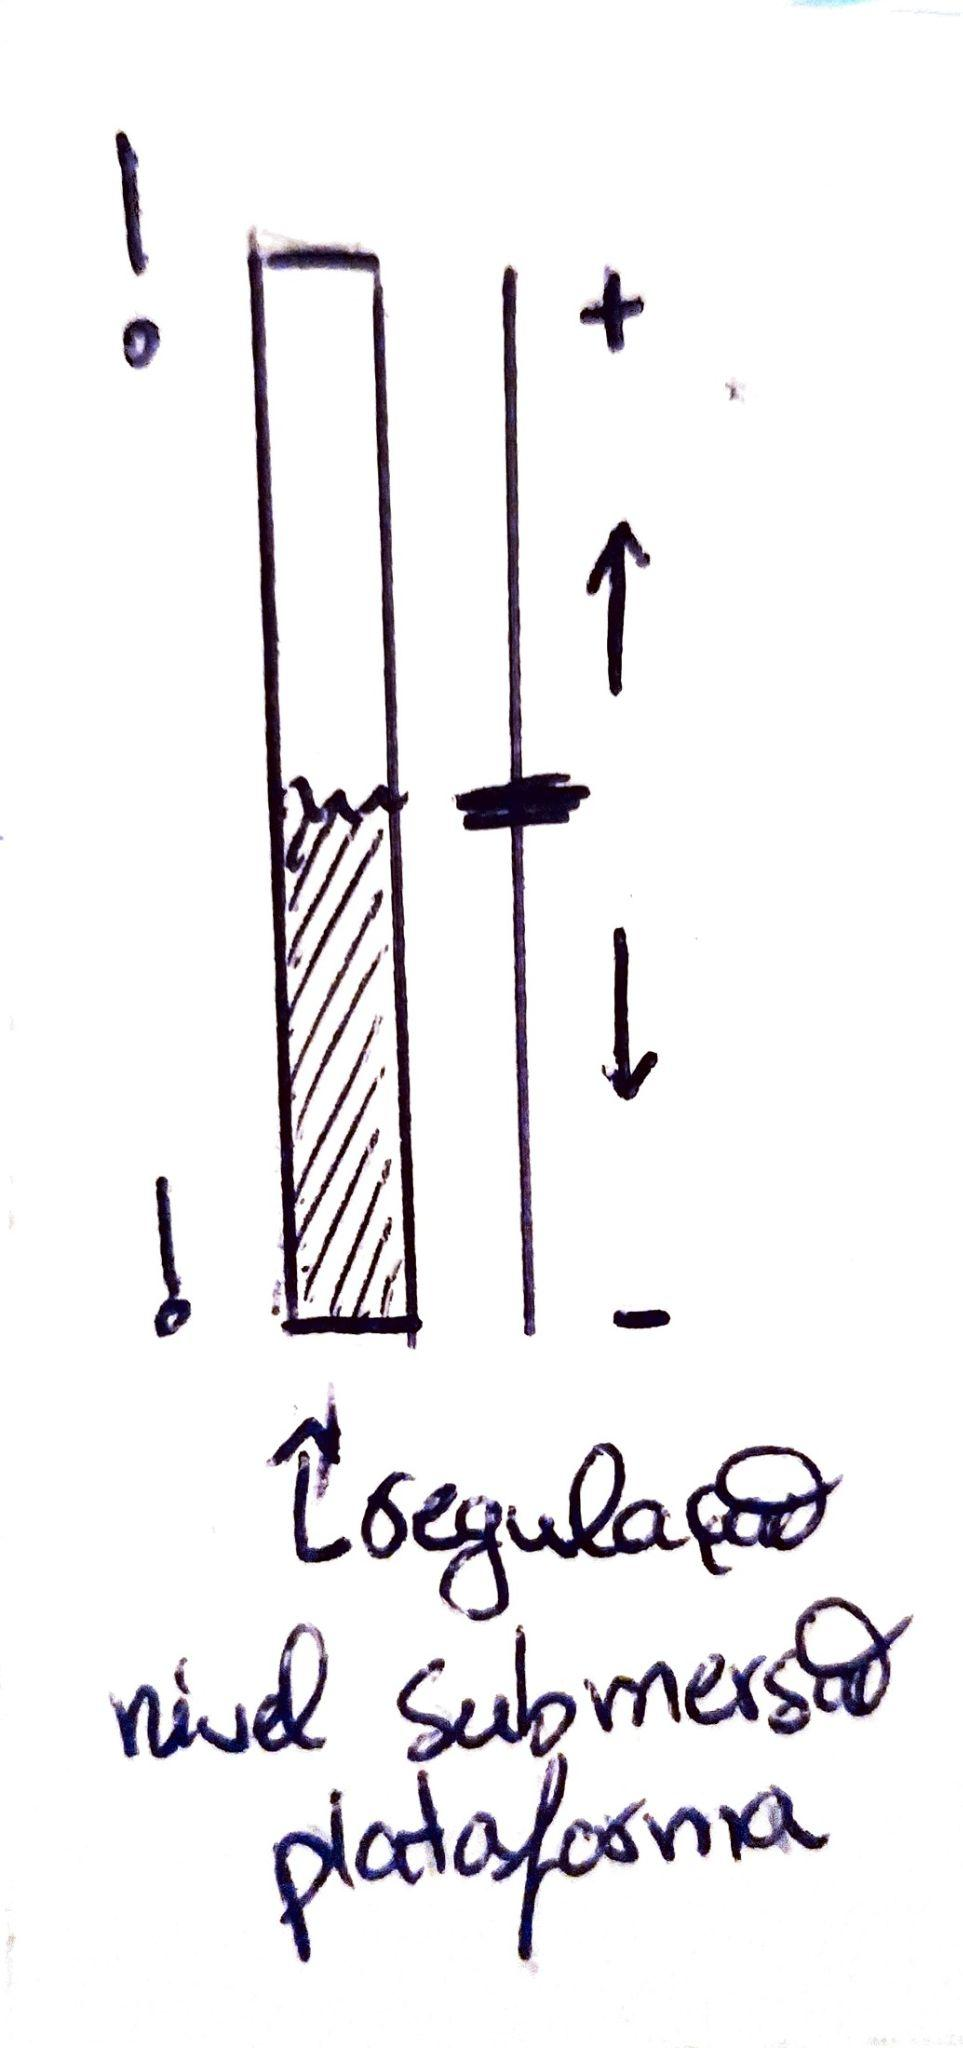 !
+
!
-
regulação
nível submersão
plataforma